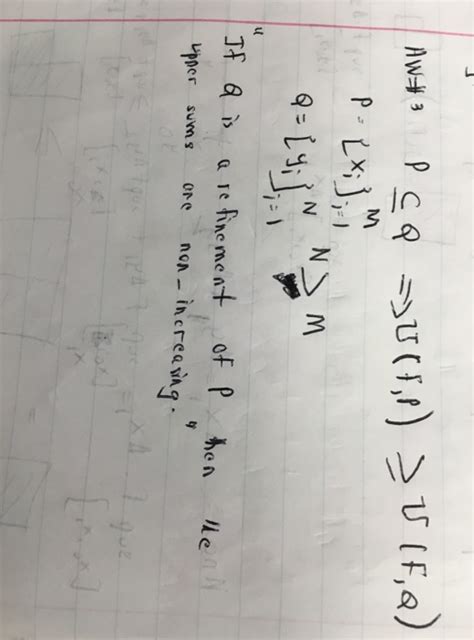 HW#3 P ⊆ Q ⇒ U(f,P) ≥ U(f,Q)
P = {x_i}_{i=1}^M
Q = {y_i}_{i=1}^N N > M
"If Q is a refinement of P then the
upper sums are non-increasing."